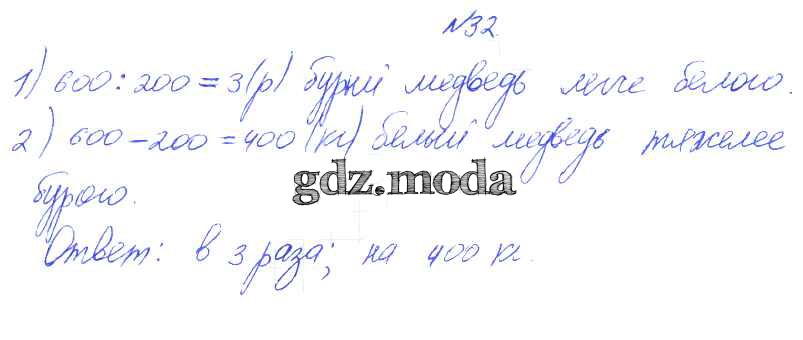 №32.
1) 600:200=3(р) бурый медведь легче белого.
2) 600-200=400 (кг) белый медведь тяжелее
gdz.moda
бурого.
Ответ: в 3 раза; на 400 кг.